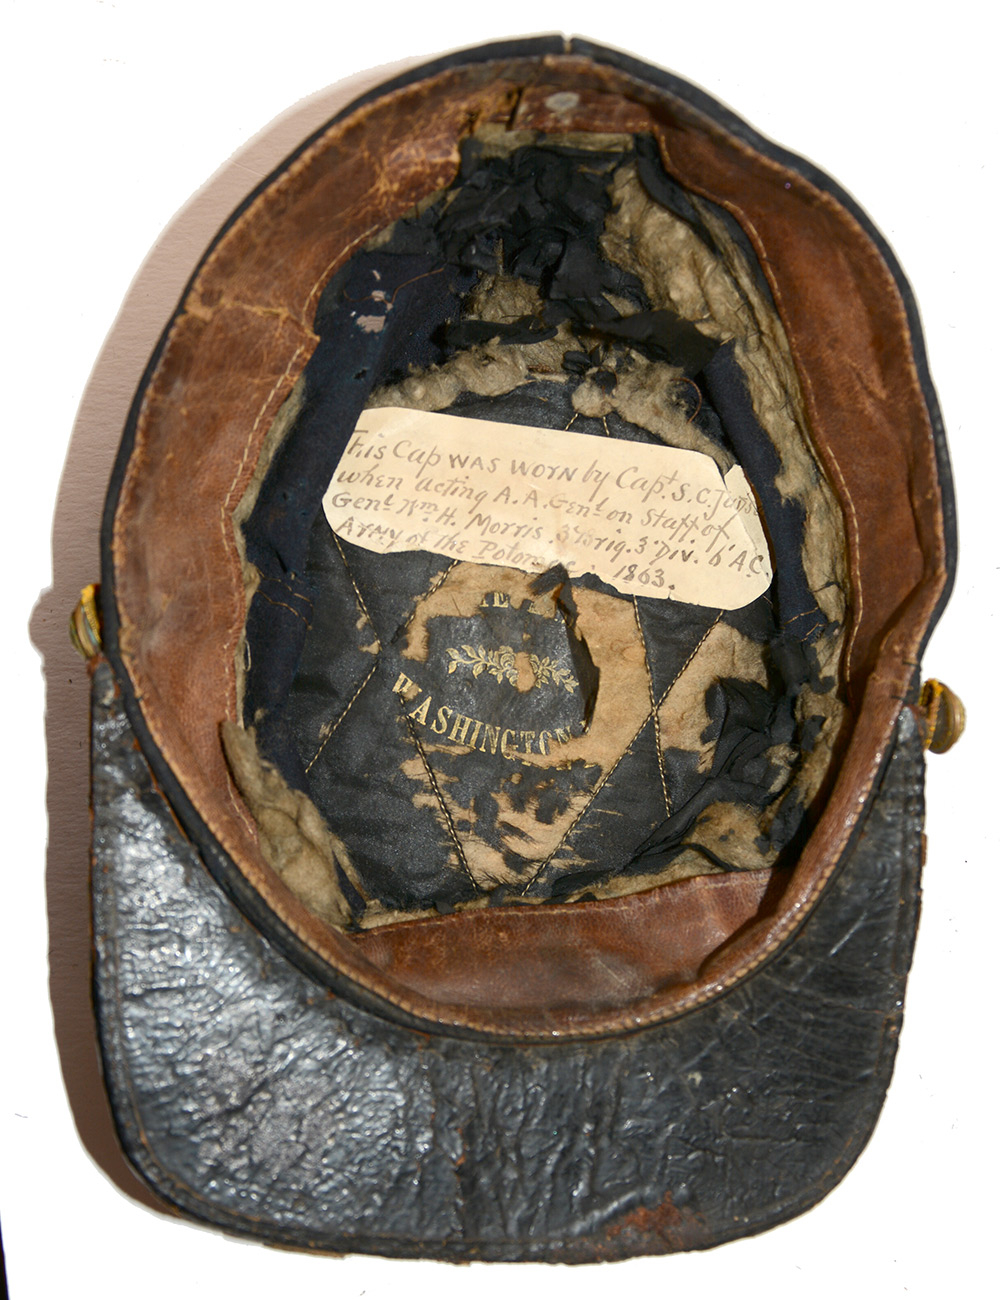 This Cap was worn by Capt. S. C.
when acting A. A. Genl. on Staff of
Genl. Wm. H. Morris 3d Brig. 3" Div. 6" A.C.
Army of the Potomac. 1863.
WASHINGTON